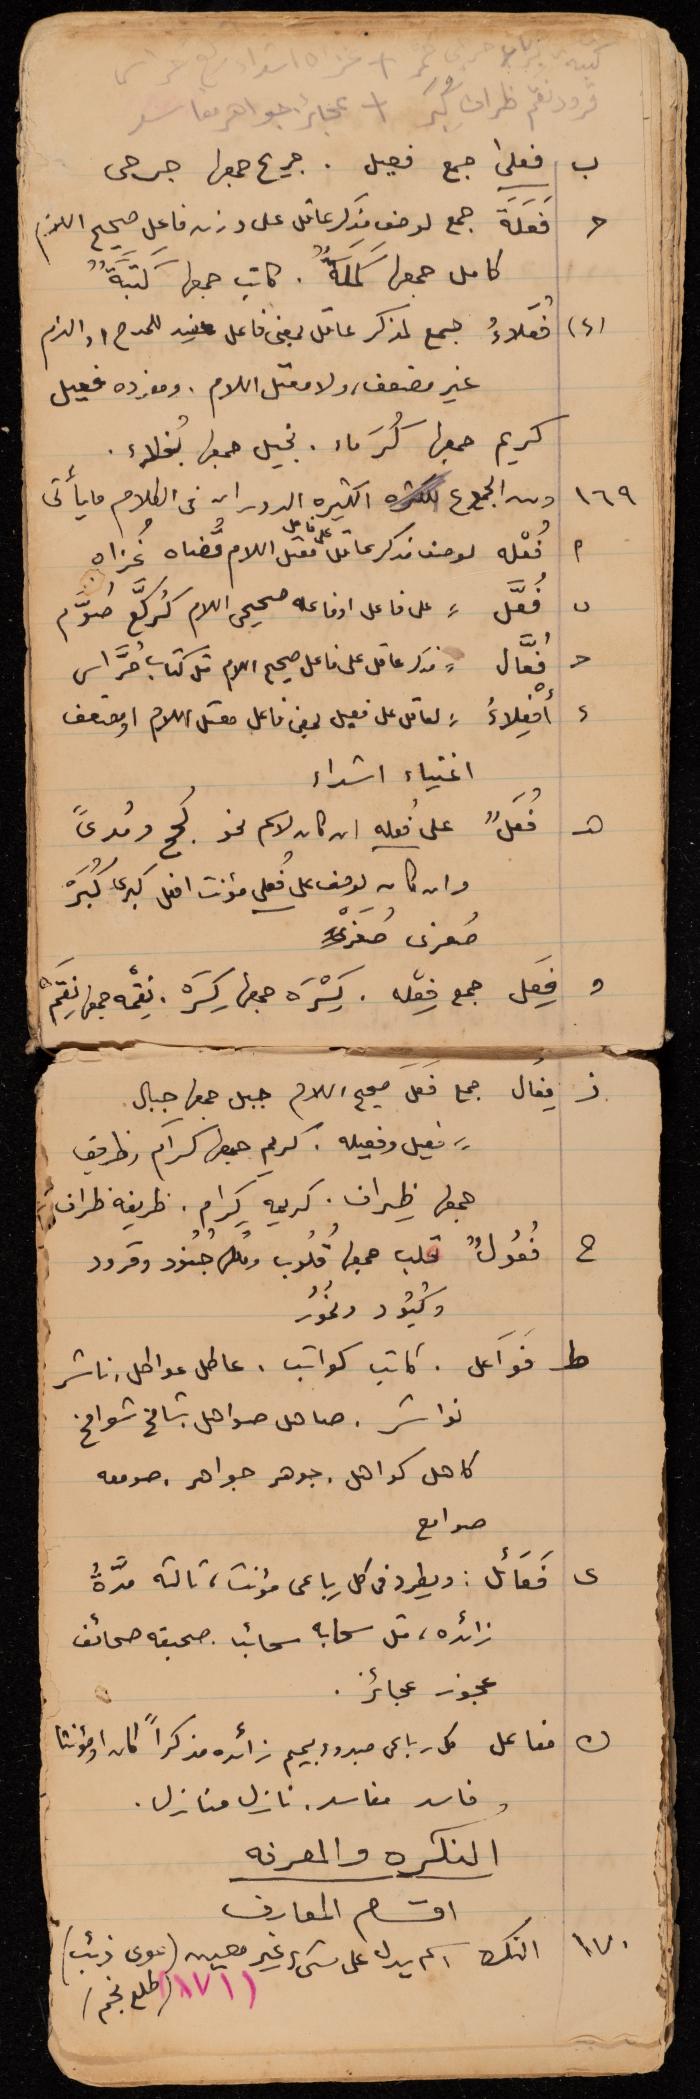 ب فعلى جمع فعيل . جريح جمعها جرحى
ح فَعَلَة جمع لوصف مذكر عاقل على وزن فاعل صحيح اللام
كامل جمعها كَمَلَةٌ . كاتب جمعها كَتَبَةٌ
(٤) فُعَلاءُ جمع لمذكر عاقل بمعنى فاعل مفيد للمدح او الذم
غير مضعف، ولا معتل اللام . ومفرده فعيل
كريم جمعها كُرَماء . بخيل جمعها بُخلاء .
١٦٩ ومن الجموع الكثيره الدوران فى الكلام ما يأتى
أ فُعْله لوصف مذكر عاقل على فاعل معتل اللام قُضاه غُزاه
ب فُعَّل = على فاعل او فاعله صحيحى اللام كرُكَّع صُوَّم
ح فُعَّال = مذكر عاقل على فاعل صحيح اللام مثل كتاب حُرَّاس
ء أَفْعِلاءُ = لعاقل على فعيل بمعنى فاعل معتل اللام او مضعف
اغنياء اشداء
هـ فُعَلٌ على فُعله ان كان لاسم نحو ومُدىً
وان كان لوصف على فُعلى مؤنث افعل كبرى كُبَرْ
صُغرى صُغَرْ
و فِعَل جمع فِعْله . كِسْرَه جمعها كِسَرَه . نِقْمه جمعها نِقَمْ
ز فِعَال جمع فَعَل صحيح اللام جبل جمعها جبال
= فعيل وفعيله . كريم جمعها كرام ، ظريف
جمعها ظِراف . كريمه كِرام . ظريفه ظراف
ح فُعُولٌ قلب جمعها قُلُوب جُنُود وقرود
وكُبُود ونُمُور
ط فَوَاعل . كاتب كواتب . عاطل عواطل ، ناشر
نواشر . صاهل صواهل شامخ شوامخ
كاهل كواهل . جوهر جواهر . صومعه
صوامع
ى فَعَائل : ويطرد فى كل رباعى مؤنث ، ثالثه مدَّةٌ
زائده ، مثل سحابه سحائب . صحيفه صحائف
عجوز عجائز .
ك مفاعل كل رباعى مبدوء بميم زائده مذكراً كان او مؤنثا
مفاسد . منازل .
النكره والمعرفه
اقسام المعارف
١٧٠ النكره اسم يدل على شىء غير معين (عوى ذئب)
(طلع نجم) (١٧١)